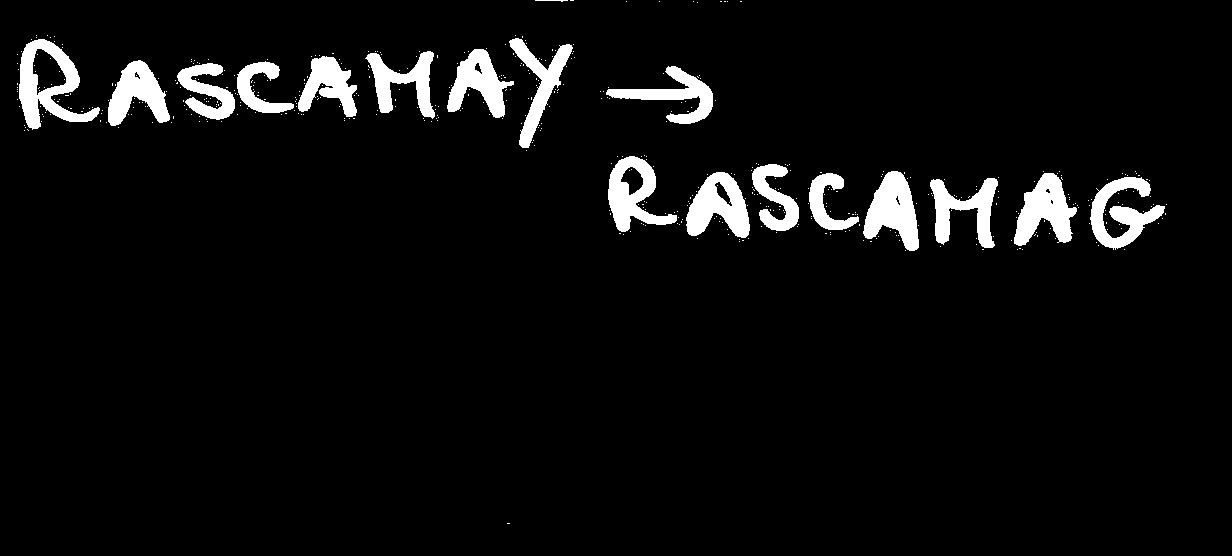 RASCAMAY →
RASCAMAG